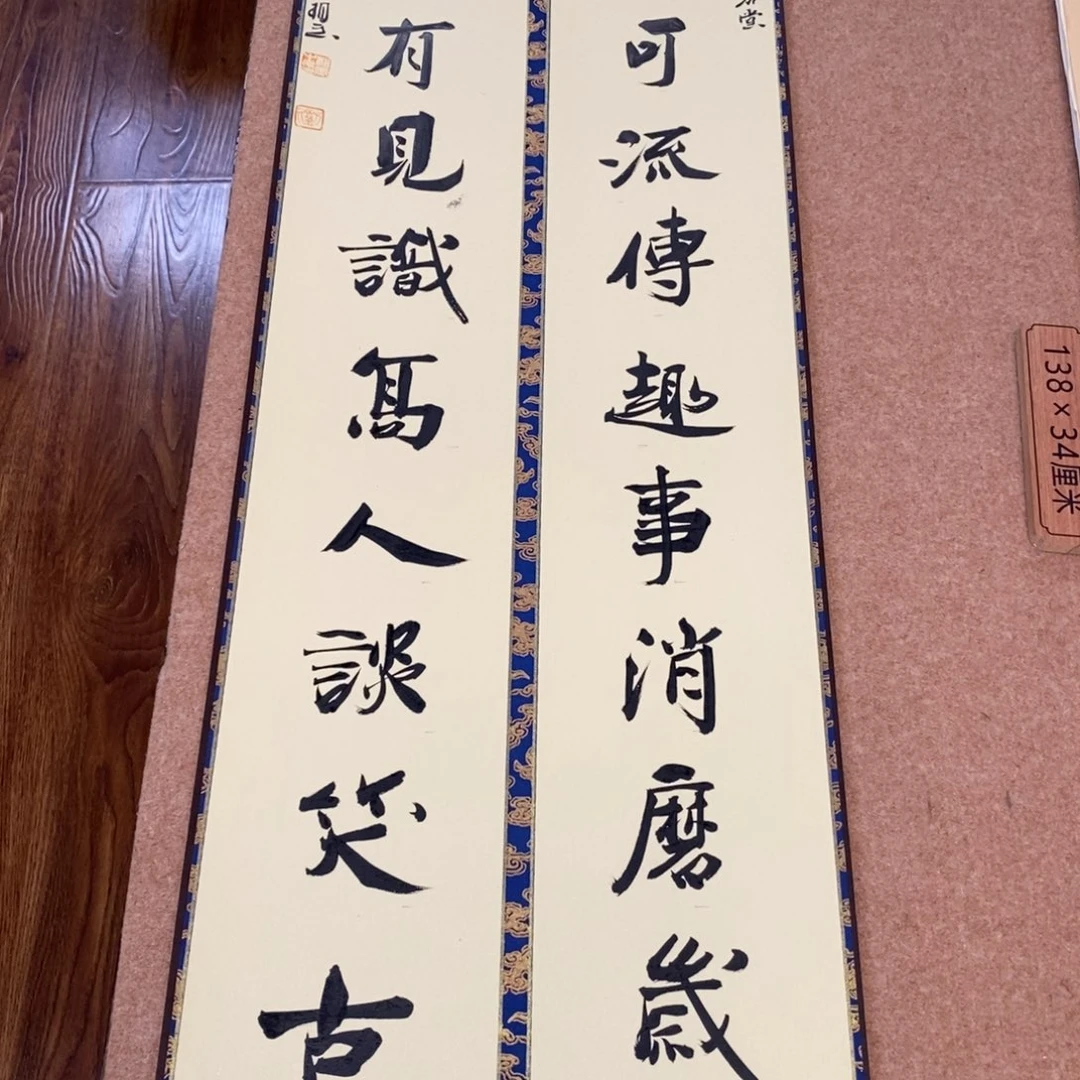 可流傳趣事消磨歲
有見識髙人談笑古
堂
138×34厘米